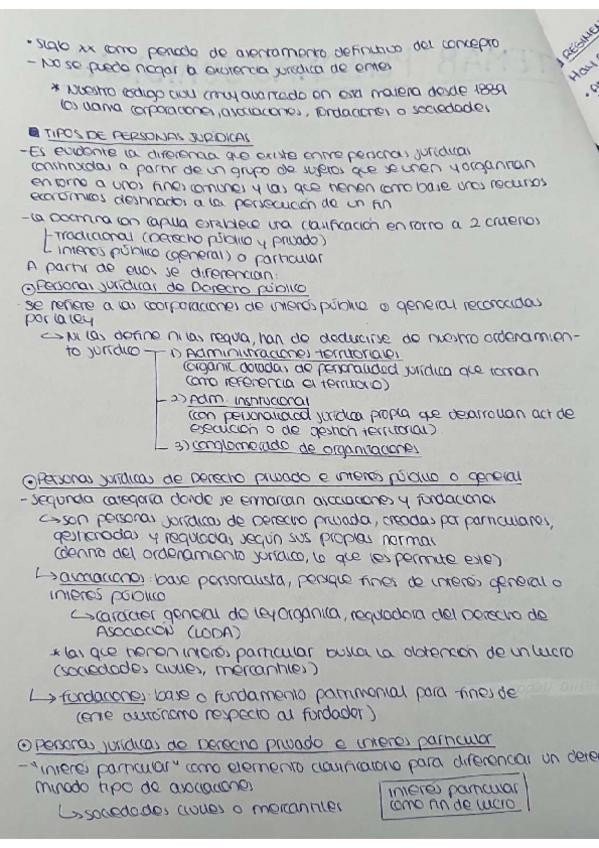 • Siglo XX como periodo de asentamiento definitivo del concepto
- No se puede negar la existencia jurídica de entes
* Nuestro código civil (muy avanzado en esta materia desde 1889
los llama corporaciones, asociaciones, fundaciones o sociedades
TIPOS DE PERSONAS JURÍDICAS
- Es evidente la diferencia que existe entre personas jurídicas
constituidas a partir de un grupo de sujetos que se unen y organizan
en torno a unos fines comunes y las que tienen como base unos recursos
económicos destinados a la persecución de un fin
- La Doctrina con capilla establece una clasificación en torno a 2 criterios
Tradicional (Derecho público y privado)
Interés público (general) o particular
A partir de ellos se diferencian:
Personas jurídicas de Derecho público
- Se refiere a las corporaciones de interés público o general reconocidas
por la ley
↳ Ni las define ni las regula, han de deducirse de nuestro ordenamien-
to jurídico
1) Administraciones territoriales
(organiz. dotadas de personalidad jurídica que toman
como referencia el territorio)
2) Adm. institucional
(con personalidad jurídica propia que desarrollan act de
ejecución o de gestión territorial)
3) conglomerado de organizaciones
Personas jurídicas de Derecho privado e interés público o general
- segunda categoría donde se enmarcan asociaciones y fundaciones
↳ son personas jurídicas de Derecho privada, creadas por particulares,
gestionadas y reguladas según sus propias normas
(dentro del ordenamiento jurídico, lo que les permite este)
↳ asociaciones: base personalista, persigue fines de interés general o
interés público
↳ carácter general de ley orgánica, reguladora del Derecho de
ASOCIACIÓN (LODA)
* las que tienen interés particular busca la obtención de un lucro
(sociedades civiles, mercantiles)
↳ fundaciones: base o fundamento patrimonial para fines de
(ente autónomo respecto al fundador)
Personas jurídicas de Derecho privado e interés particular
- "interés particular" como elemento clasificatorio para diferenciar un deter
minado tipo de asociaciones
↳ sociedades civiles o mercantiles
interés particular
como fin de lucro
REGIMEN